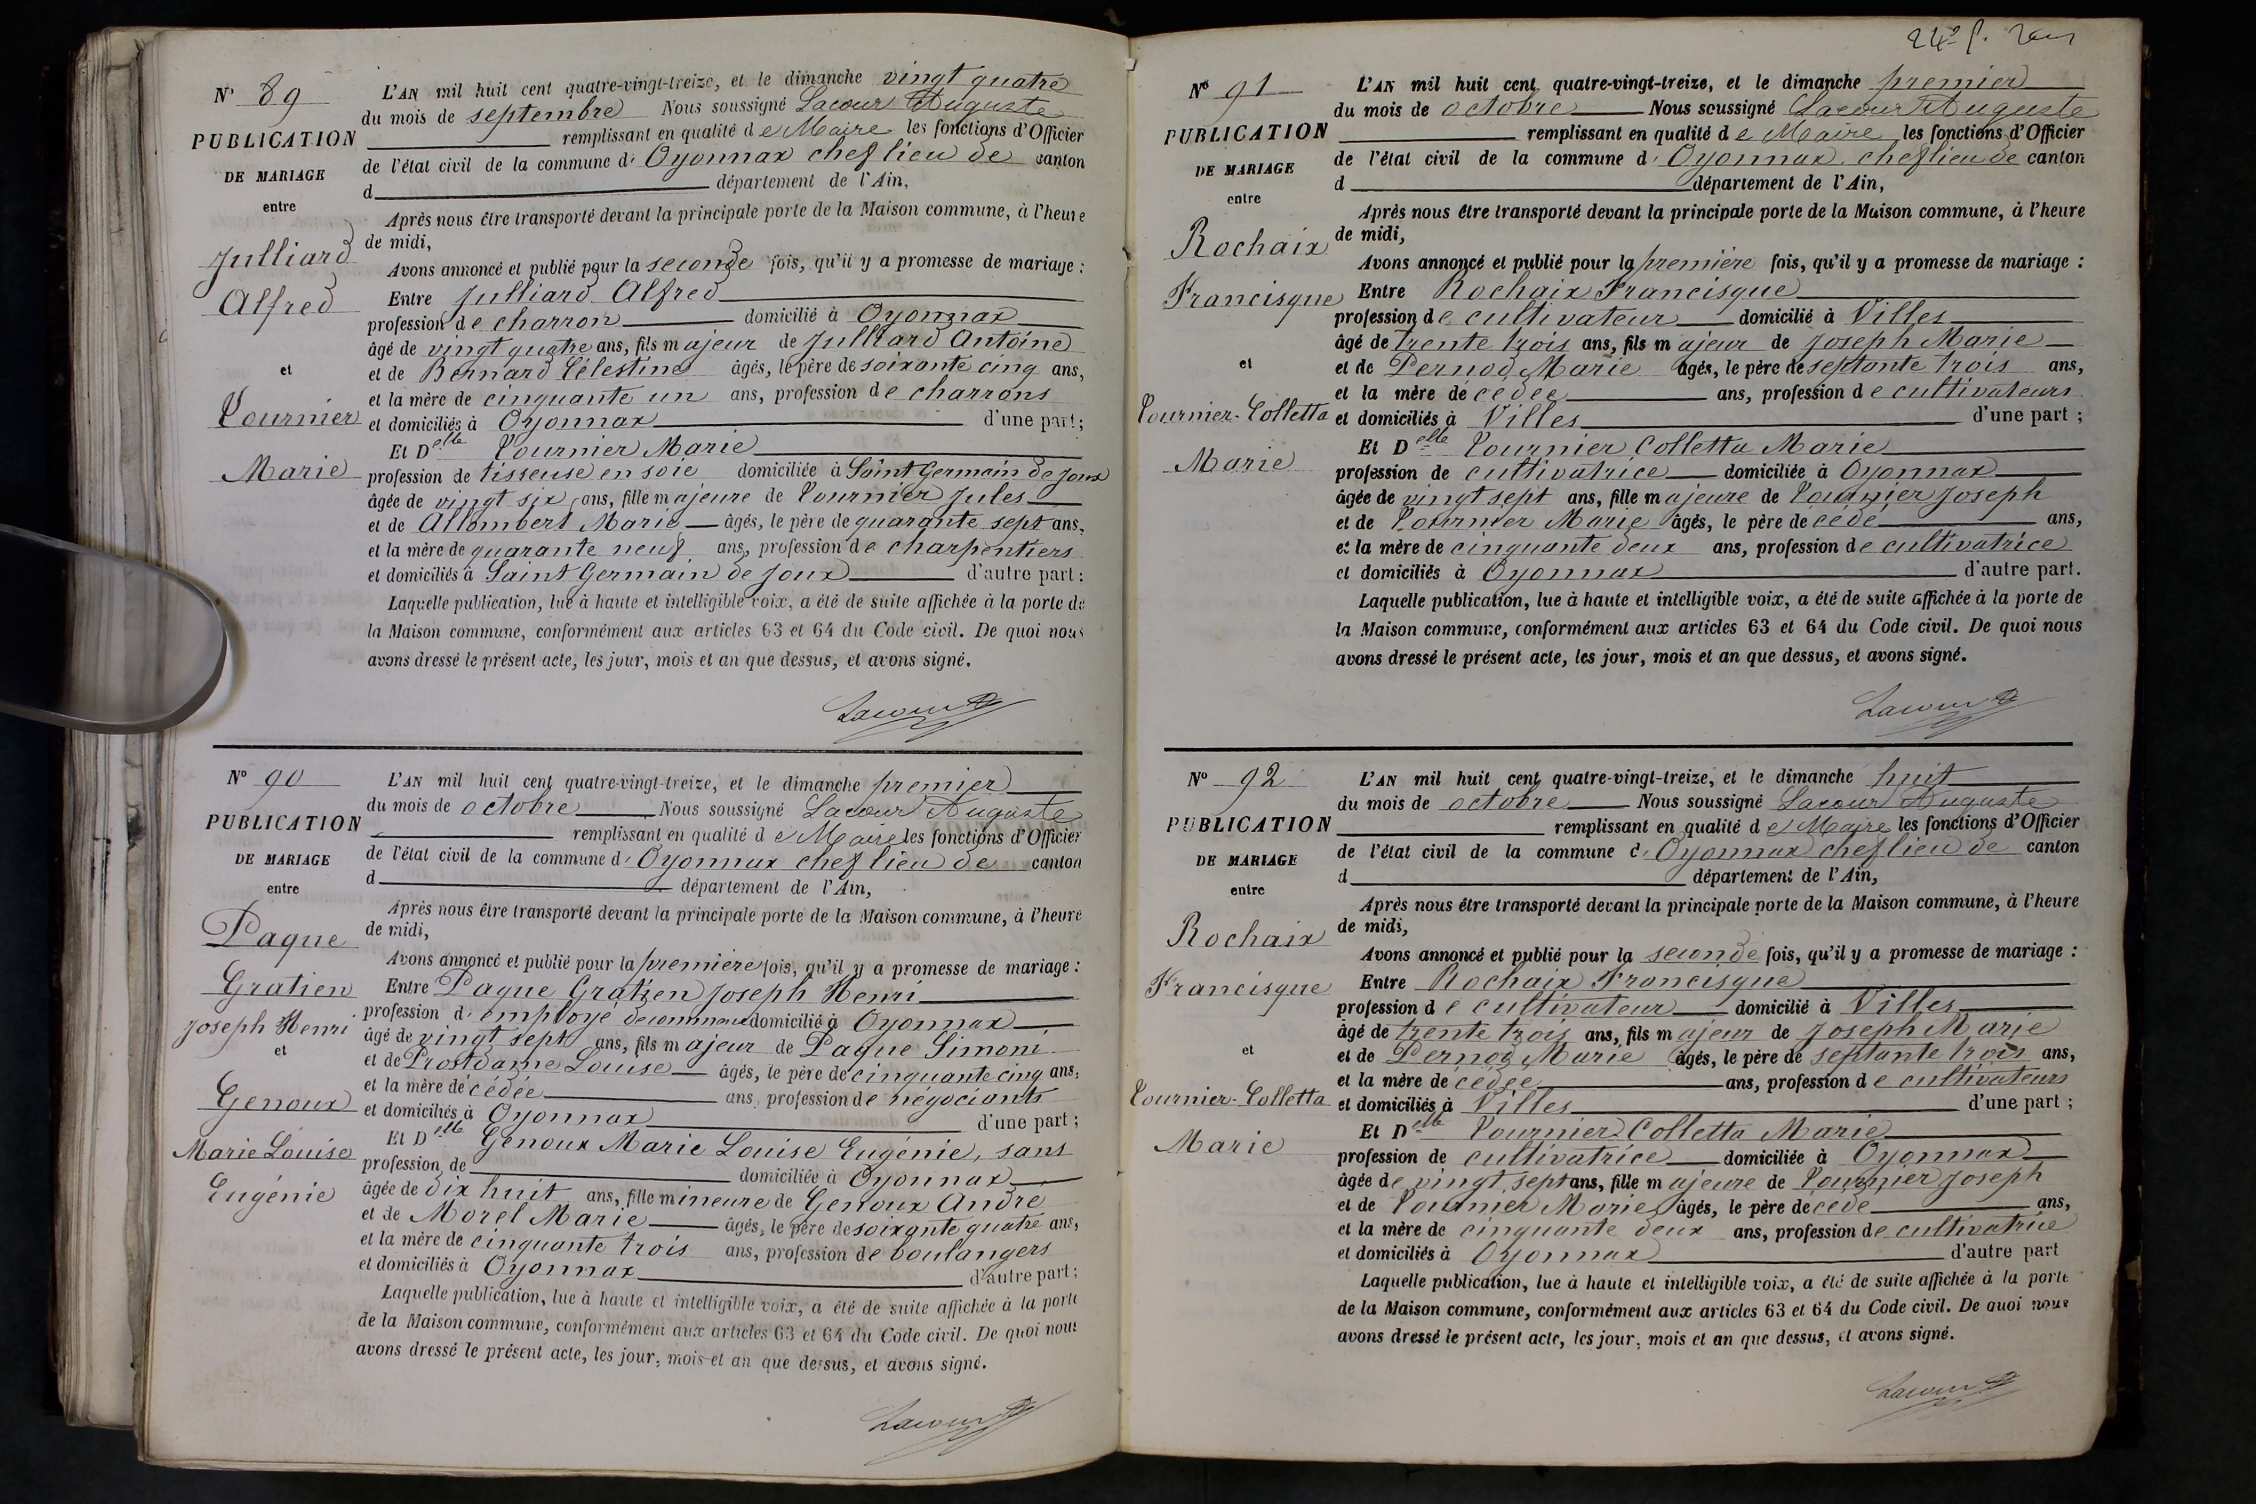 Nº 89
PUBLICATION
DE MARIAGE
entre
Julliard
Alfred
et
Tournier
Marie
L'AN mil huit cent quatre-vingt-treize, et le dimanche vingt quatre
du mois de septembre Nous soussigné Lacour Auguste
remplissant en qualité de Maire les fonctions d'Officier
de l'état civil de la commune d' Oyonnax chef lieu de canton
d département de l'Ain,
Après nous être transporté devant la principale porte de la Maison commune, à l'heure
de midi,
Avons annoncé et publié pour la seconde fois, qu'il y a promesse de mariage :
Entre Julliard Alfred
profession de charron domicilié à Oyonnax
âgé de vingt quatre ans, fils majeur de Julliard Antoine
et de Bernard Célestine âgés, le père de soixante cinq ans,
et la mère de cinquante un ans, profession de charrons
et domiciliés à Oyonnax d'une part ;
Et Delle Tournier Marie
profession de tisseuse en soie domiciliée à Saint Germain de Joux
âgée de vingt six ans, fille majeure de Tournier Jules
et de Allombert Marie âgés, le père de quarante sept ans,
et la mère de quarante neuf ans, profession de charpentiers
et domiciliés à Saint Germain de Joux d'autre part :
Laquelle publication, lue à haute et intelligible voix, a été de suite affichée à la porte de
la Maison commune, conformément aux articles 63 et 64 du Code civil. De quoi nous
avons dressé le présent acte, les jour, mois et an que dessus, et avons signé.
Lacour
Nº 90
PUBLICATION
DE MARIAGE
entre
Paque
Gratien
Joseph Henri
et
Genoux
Marie Louise
Eugénie
L'AN mil huit cent quatre-vingt-treize, et le dimanche premier
du mois de octobre Nous soussigné Lacour Auguste
remplissant en qualité de Maire les fonctions d'Officier
de l'état civil de la commune d' Oyonnax chef lieu de canton
d département de l'Ain,
Après nous être transporté devant la principale porte de la Maison commune, à l'heure
de midi,
Avons annoncé et publié pour la première fois, qu'il y a promesse de mariage :
Entre Paque Gratien Joseph Henri
profession d' employé de commerce domicilié à Oyonnax
âgé de vingt sept ans, fils majeur de Paque Simoni
et de Prostdame Louise âgés, le père de cinquante cinq ans,
et la mère décédée ans, profession de négociants
et domiciliés à Oyonnax d'une part ;
Et Delle Genoux Marie Louise Eugénie, sans
profession de domiciliée à Oyonnax
âgée de dix huit ans, fille mineure de Genoux André
et de Morel Marie âgés, le père de soixante quatre ans,
et la mère de cinquante trois ans, profession de boulangers
et domiciliés à Oyonnax d'autre part ;
Laquelle publication, lue à haute et intelligible voix, a été de suite affichée à la porte
de la Maison commune, conformément aux articles 63 et 64 du Code civil. De quoi nous
avons dressé le présent acte, les jour, mois et an que dessus, et avons signé.
Lacour
Nº 91
PUBLICATION
DE MARIAGE
entre
Rochaix
Francisque
et
Tournier-Colletta
Marie
L'AN mil huit cent quatre-vingt-treize, et le dimanche premier
du mois de octobre Nous soussigné Lacour Auguste
remplissant en qualité de Maire les fonctions d'Officier
de l'état civil de la commune d' Oyonnax chef lieu de canton
d département de l'Ain,
Après nous être transporté devant la principale porte de la Maison commune, à l'heure
de midi,
Avons annoncé et publié pour la première fois, qu'il y a promesse de mariage :
Entre Rochaix Francisque
profession de cultivateur domicilié à Villes
âgé de trente trois ans, fils majeur de Joseph Marie
et de Pernod Marie âgés, le père de septante trois ans,
et la mère décédée ans, profession de cultivateurs
et domiciliés à Villes d'une part ;
Et Delle Tournier Colletta Marie
profession de cultivatrice domiciliée à Oyonnax
âgée de vingt sept ans, fille majeure de Tournier Joseph
et de Tournier Marie âgés, le père décédé ans,
et la mère de cinquante deux ans, profession de cultivatrice
et domiciliés à Oyonnax d'autre part.
Laquelle publication, lue à haute et intelligible voix, a été de suite affichée à la porte de
la Maison commune, conformément aux articles 63 et 64 du Code civil. De quoi nous
avons dressé le présent acte, les jour, mois et an que dessus, et avons signé.
Lacour
Nº 92
PUBLICATION
DE MARIAGE
entre
Rochaix
Francisque
et
Tournier-Colletta
Marie
L'AN mil huit cent quatre-vingt-treize, et le dimanche huit
du mois de octobre Nous soussigné Lacour Auguste
remplissant en qualité de Maire les fonctions d'Officier
de l'état civil de la commune d' Oyonnax chef lieu de canton
d département de l'Ain,
Après nous être transporté devant la principale porte de la Maison commune, à l'heure
de midi,
Avons annoncé et publié pour la seconde fois, qu'il y a promesse de mariage :
Entre Rochaix Francisque
profession de cultivateur domicilié à Villes
âgé de trente trois ans, fils majeur de Joseph Marie
et de Pernod Marie âgés, le père de septante trois ans,
et la mère décédée ans, profession de cultivateurs
et domiciliés à Villes d'une part ;
Et Delle Tournier Colletta Marie
profession de cultivatrice domiciliée à Oyonnax
âgée de vingt sept ans, fille majeure de Tournier Joseph
et de Tournier Marie âgés, le père décédé ans,
et la mère de cinquante deux ans, profession de cultivatrice
et domiciliés à Oyonnax d'autre part
Laquelle publication, lue à haute et intelligible voix, a été de suite affichée à la porte
de la Maison commune, conformément aux articles 63 et 64 du Code civil. De quoi nous
avons dressé le présent acte, les jour, mois et an que dessus, et avons signé.
Lacour